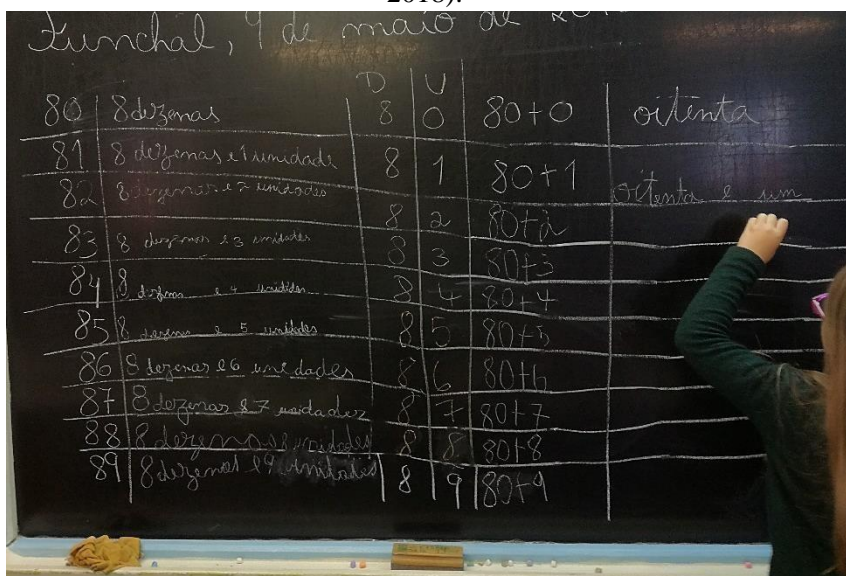 2018).
Funchal, 9 de maio de 201
D U
80 8 dezenas 8 0 80+0 oitenta
81 8 dezenas e 1 unidade 8 1 80+1 oitenta e um
82 8 dezenas e 2 unidades 8 2 80+2
83 8 dezenas e 3 unidades 8 3 80+3
84 8 dezenas e 4 unidades 8 4 80+4
85 8 dezenas e 5 unidades 8 5 80+5
86 8 dezenas e 6 unidades 8 6 80+6
87 8 dezenas e 7 unidades 8 7 80+7
88 8 dezenas e 8 unidades 8 8 80+8
89 8 dezenas e 9 unidades 8 9 80+9